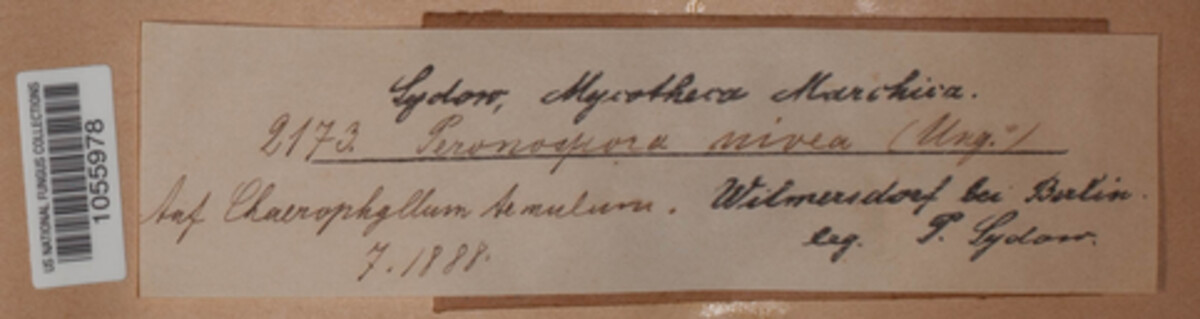 US NATIONAL FUNGUS COLLECTIONS
1055978
Sydow, Mycotheca Marchica.
2173. Peronospora nivea (Ung.)
Auf Chaerophyllum temulum. Wilmersdorf bei Berlin.
7. 1888. leg. P. Sydow.